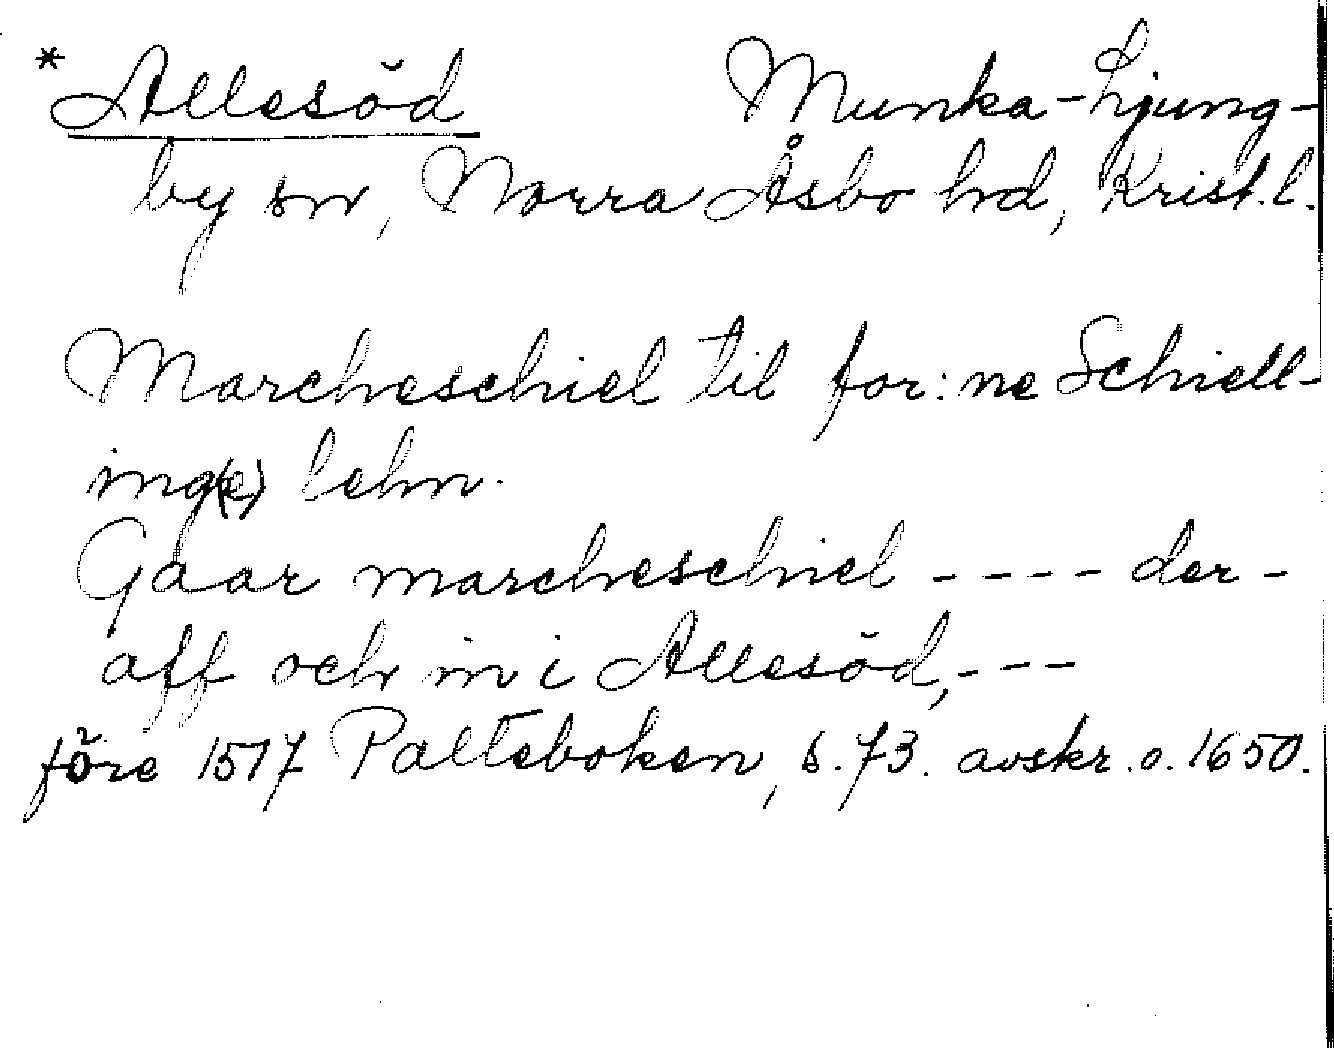 * Allesöd Munka-Ljung-
by sn, Norra Åsbo hd, Krist. l.
Marcheschiel til for:ne Schiell-
ing(e) lehn.
Gaar marcheschiel ---- der-
aff och in i Allesöd, ---
före 1517 Palteboken, s. 73. avskr. o. 1650.